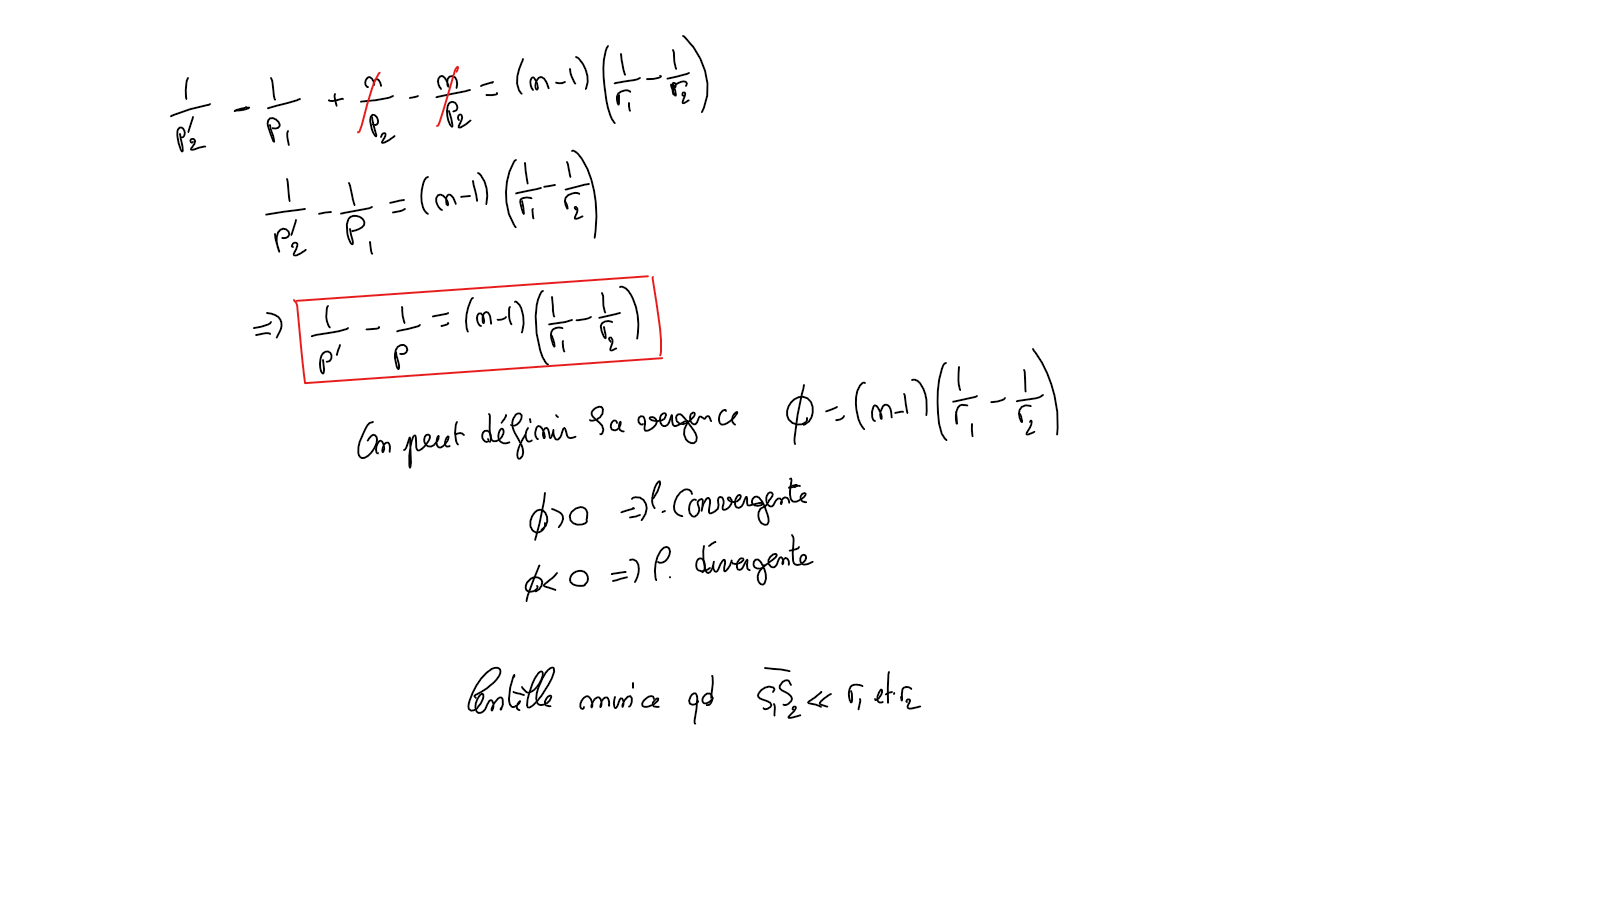 1/p₂' - 1/p₁ + n/p₂ - n/p₂ = (n-1) (1/r₁ - 1/r₂)
1/p₂' - 1/p₁ = (n-1) (1/r₁ - 1/r₂)
=> 1/p' - 1/p = (n-1) (1/r₁ - 1/r₂)
On peut définir la vergence ϕ = (n-1) (1/r₁ - 1/r₂)
ϕ>0 => l. Convergente
ϕ<0 => l. divergente
lentille mince qd S₁S₂ ≪ r₁ et r₂